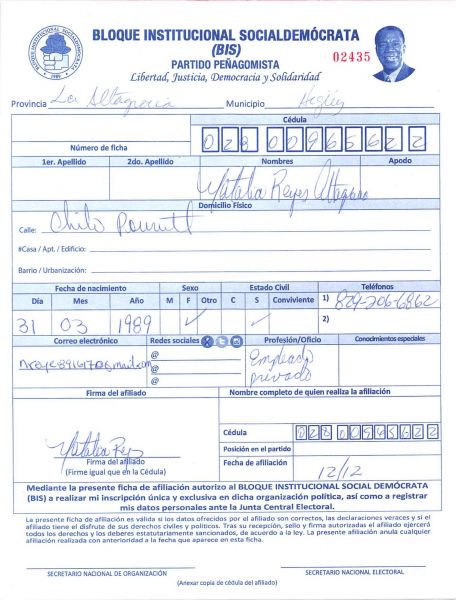 BLOQUE INSTITUCIONAL SOCIALDEMÓCRATA
(BIS)
PARTIDO PEÑAGOMISTA
Libertad, Justicia, Democracia y Solidaridad
02435
Provincia La Altagracia Municipio Higüey
Cédula
Número de ficha
1er. Apellido 2do. Apellido Nombres Apodo
Natalia Reyes
Domicilio Físico
Calle: Chilo
#Casa / Apt. / Edificio:
Barrio / Urbanización:
Fecha de nacimiento Sexo Estado Civil Teléfonos
Día Mes Año M F Otro C S Conviviente 1) 829-206-6862
31 03 1989 ✓ ✓ 2)
Correo electrónico Redes sociales Profesión/Oficio Conocimientos especiales
@
@
@
Empleado
privado
Firma del afiliado Nombre completo de quien realiza la afiliación
Cédula
Posición en el partido
Natalia Reyes
Firma del afiliado
(Firme igual que en la Cédula)
Fecha de afiliación 12/12
Mediante la presente ficha de afiliación autorizo al BLOQUE INSTITUCIONAL SOCIAL DEMÓCRATA
(BIS) a realizar mi inscripción única y exclusiva en dicha organización política, así como a registrar
mis datos personales ante la Junta Central Electoral.
La presente ficha de afiliación es válida si los datos ofrecidos por el afiliado son correctos, las declaraciones veraces y si el
afiliado tiene el disfrute de sus derechos civiles y políticos. Tras su recepción, sello y firma autorizadas el afiliado ejercerá
todos los derechos y los deberes estatutariamente sancionados, de acuerdo a la ley. La presente afiliación anula cualquier
afiliación realizada con anterioridad a la fecha que aparece en esta ficha.
SECRETARIO NACIONAL DE ORGANIZACIÓN SECRETARIO NACIONAL ELECTORAL
(Anexar copia de cédula del afiliado)